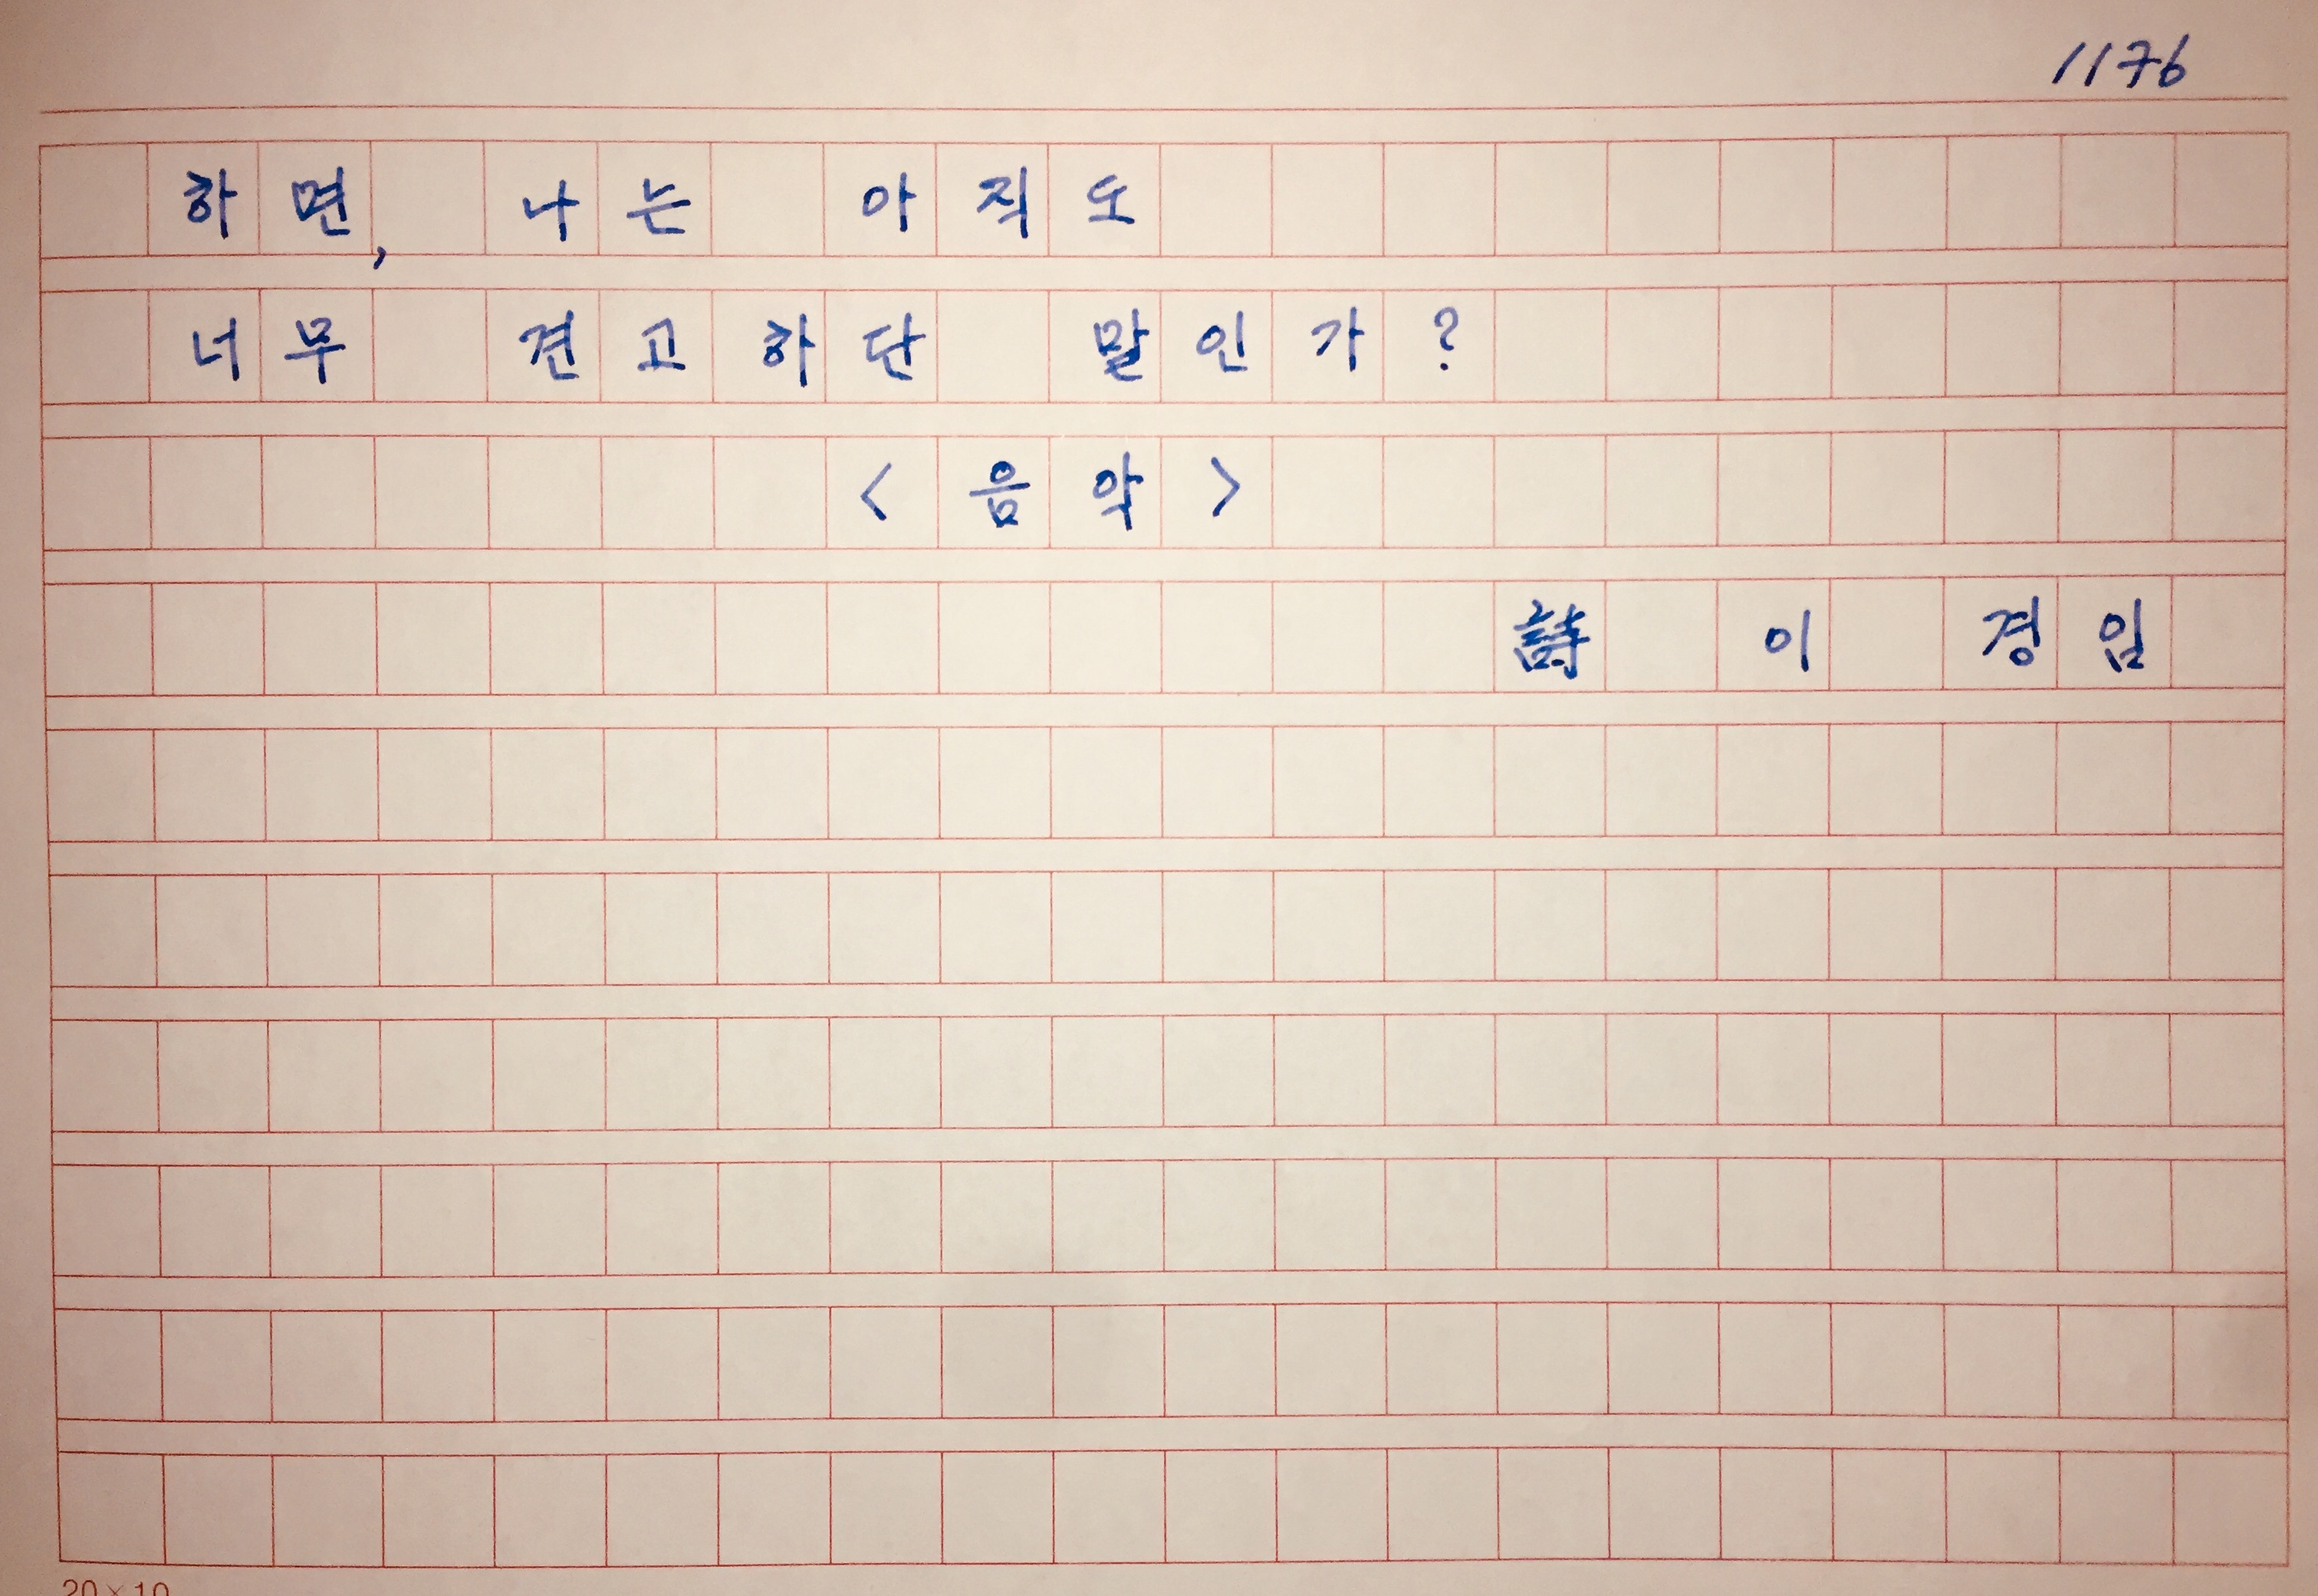 1176
하면, 나는 아직도
너무 견고하단 말인가?
<음악>
詩 이 경임
20×10